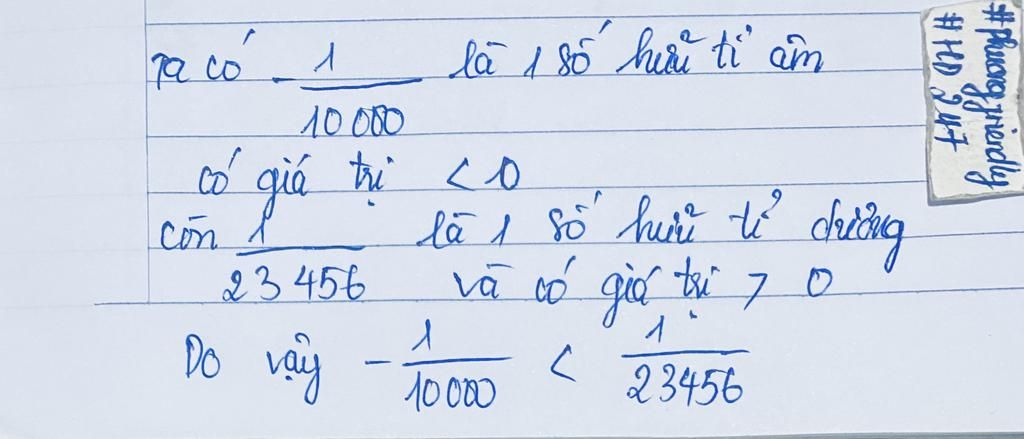 Ta có -1/10000 là 1 số hữu tỉ âm
có giá trị < 0
còn 1/23456 là 1 số hữu tỉ dương
và có giá trị > 0
Do vậy -1/10000 < 1/23456
#phuongfriendly
#HD247